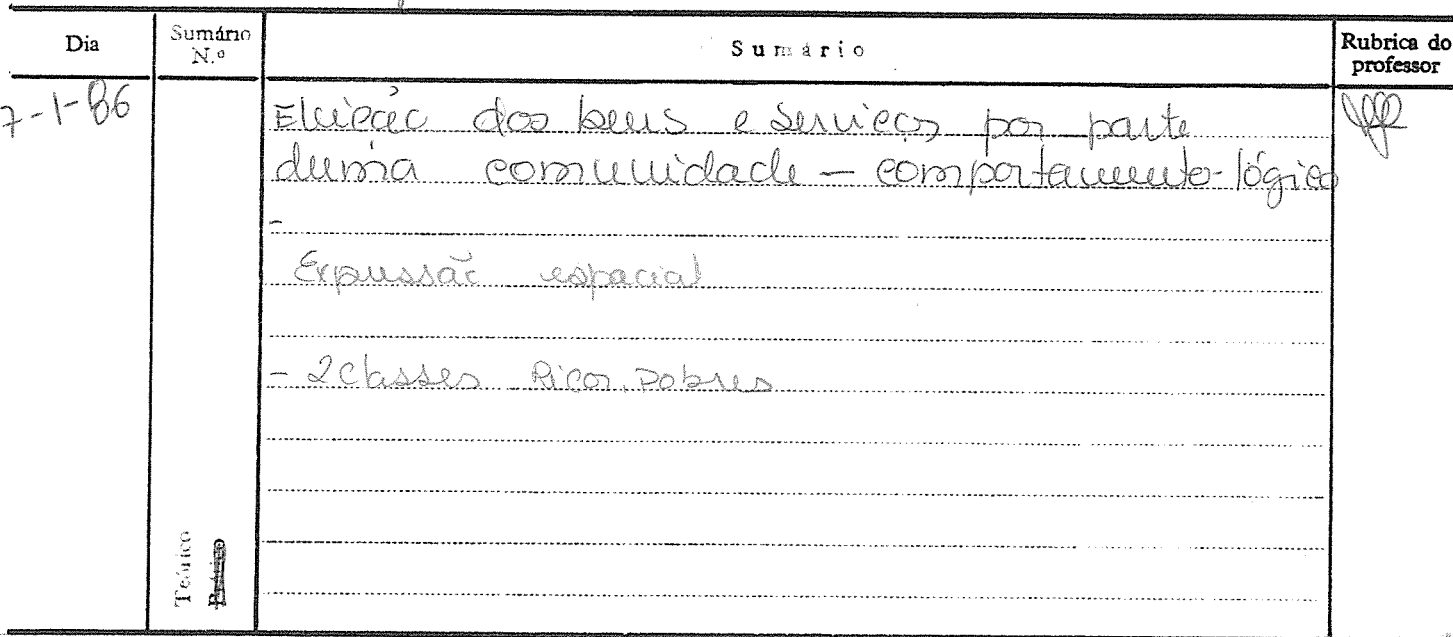 Dia Sumário N.º Sumário Rubrica do professor
7-1-86
Eleição dos bens e serviços por parte
duma comunidade – comportamento-lógico
-
Expressão espacial
- 2 classes Ricos, Pobres
Teórico
Prático